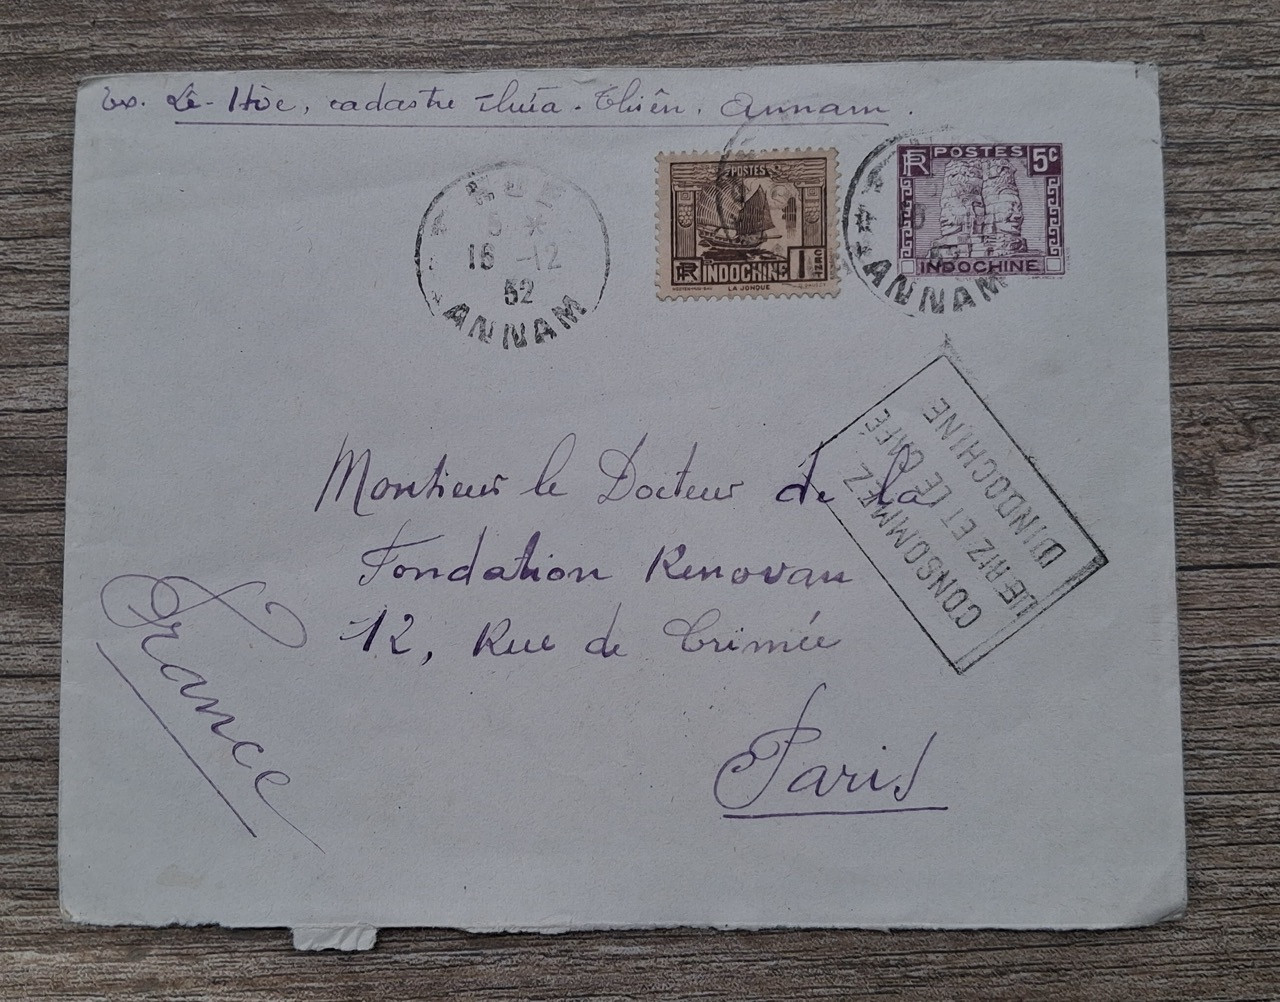 Ex. Lê-Hòe, cadastre Thừa-Thiên, Annam.
HUE
5 *
16 -12
32
ANNAM
POSTES
RF INDOCHINE 1 CENT
LA JONQUE
RF POSTES 5c
INDOCHINE
ANNAM
CONSOMMEZ
LE RIZ ET LE CAFÉ
D'INDOCHINE
Monsieur le Docteur de la
Fondation Renovan
12, Rue de Crimée
Paris
France